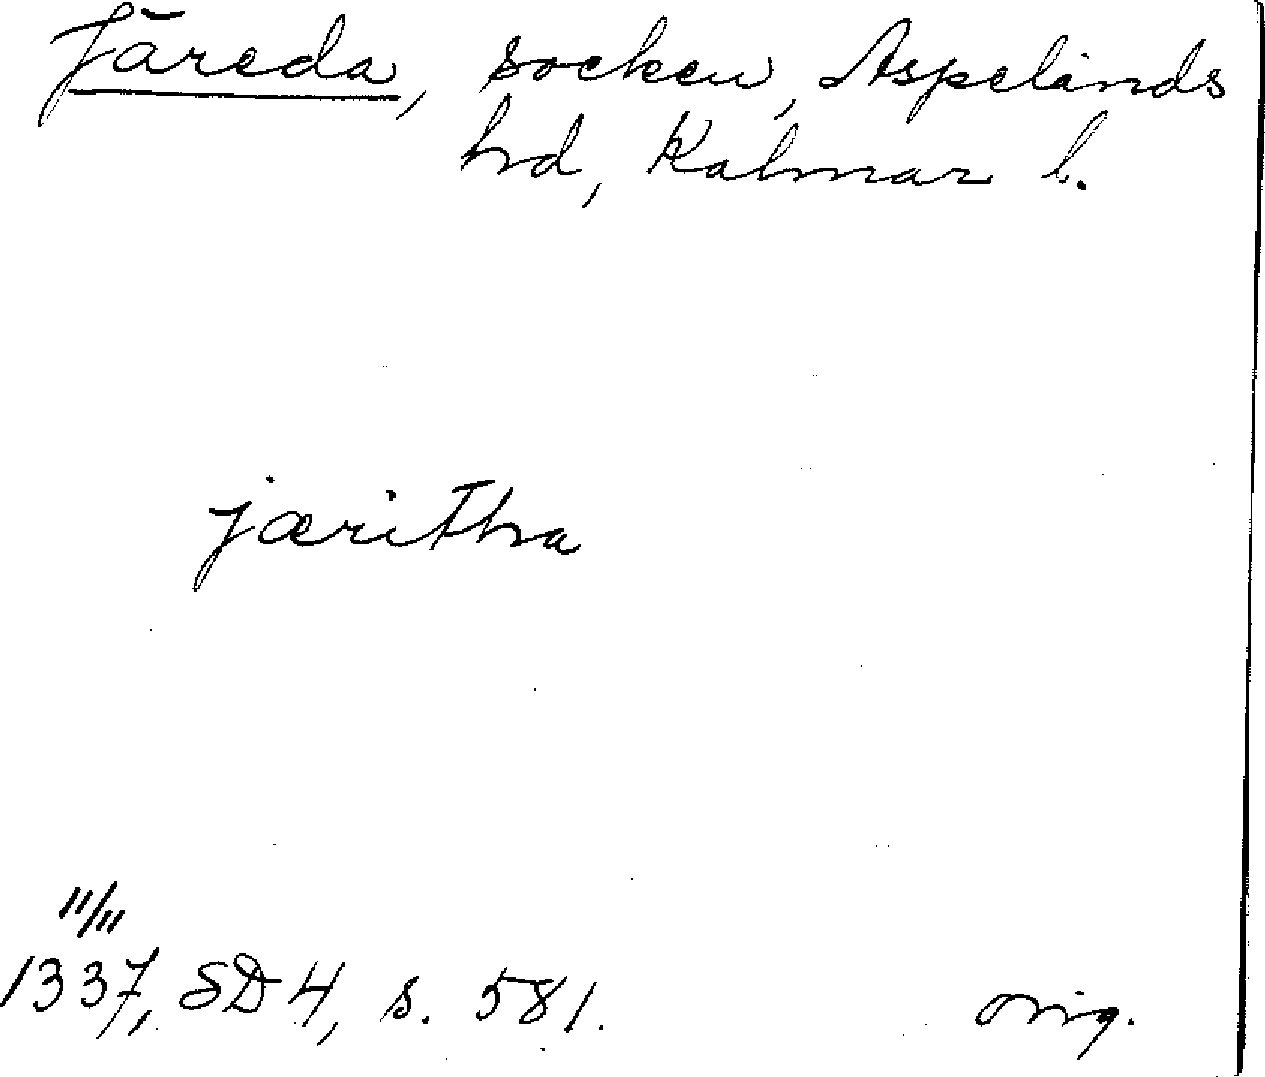 Järeda, socken, Aspelands
hd, Kalmar l.
jæritha
11/11
1337, SD 4, s. 581.
orig.